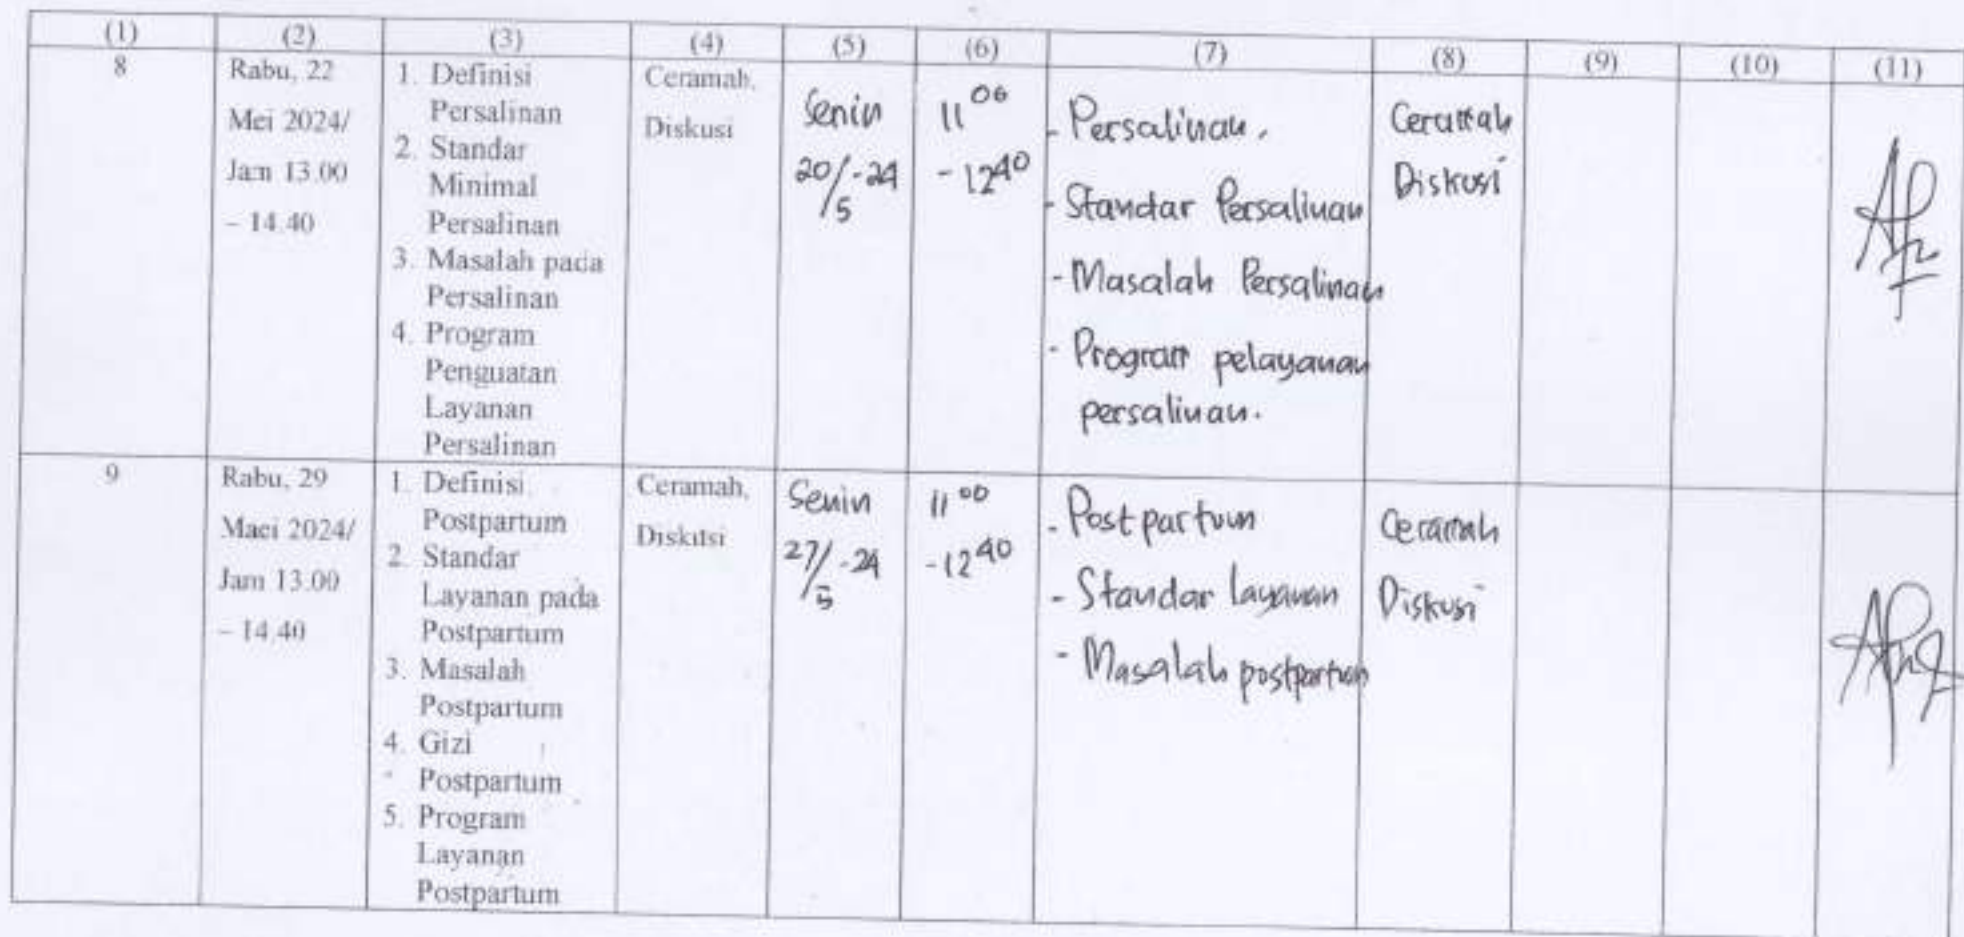 (1) (2) (3) (4) (5) (6) (7) (8) (9) (10) (11)
8
Rabu, 22
Mei 2024/
Jam 13.00
– 14.40
1. Definisi
Persalinan
2. Standar
Minimal
Persalinan
3. Masalah pada
Persalinan
4. Program
Penguatan
Layanan
Persalinan
Ceramah,
Diskusi
Senin
20/5-24
11 00
- 12 40
- Persalinan.
- Standar Persalinan
- Masalah Persalinan
- Program pelayanan
persalinan.
Ceramah
Diskusi
9
Rabu, 29
Maei 2024/
Jam 13.00
– 14.40
1. Definisi
Postpartum
2. Standar
Layanan pada
Postpartum
3. Masalah
Postpartum
4. Gizi
Postpartum
5. Program
Layanan
Postpartum
Ceramah,
Diskusi
Senin
27/5-24
11 00
- 12 40
- Postpartum
- Standar layanan
- Masalah postpartum
Ceramah
Diskusi